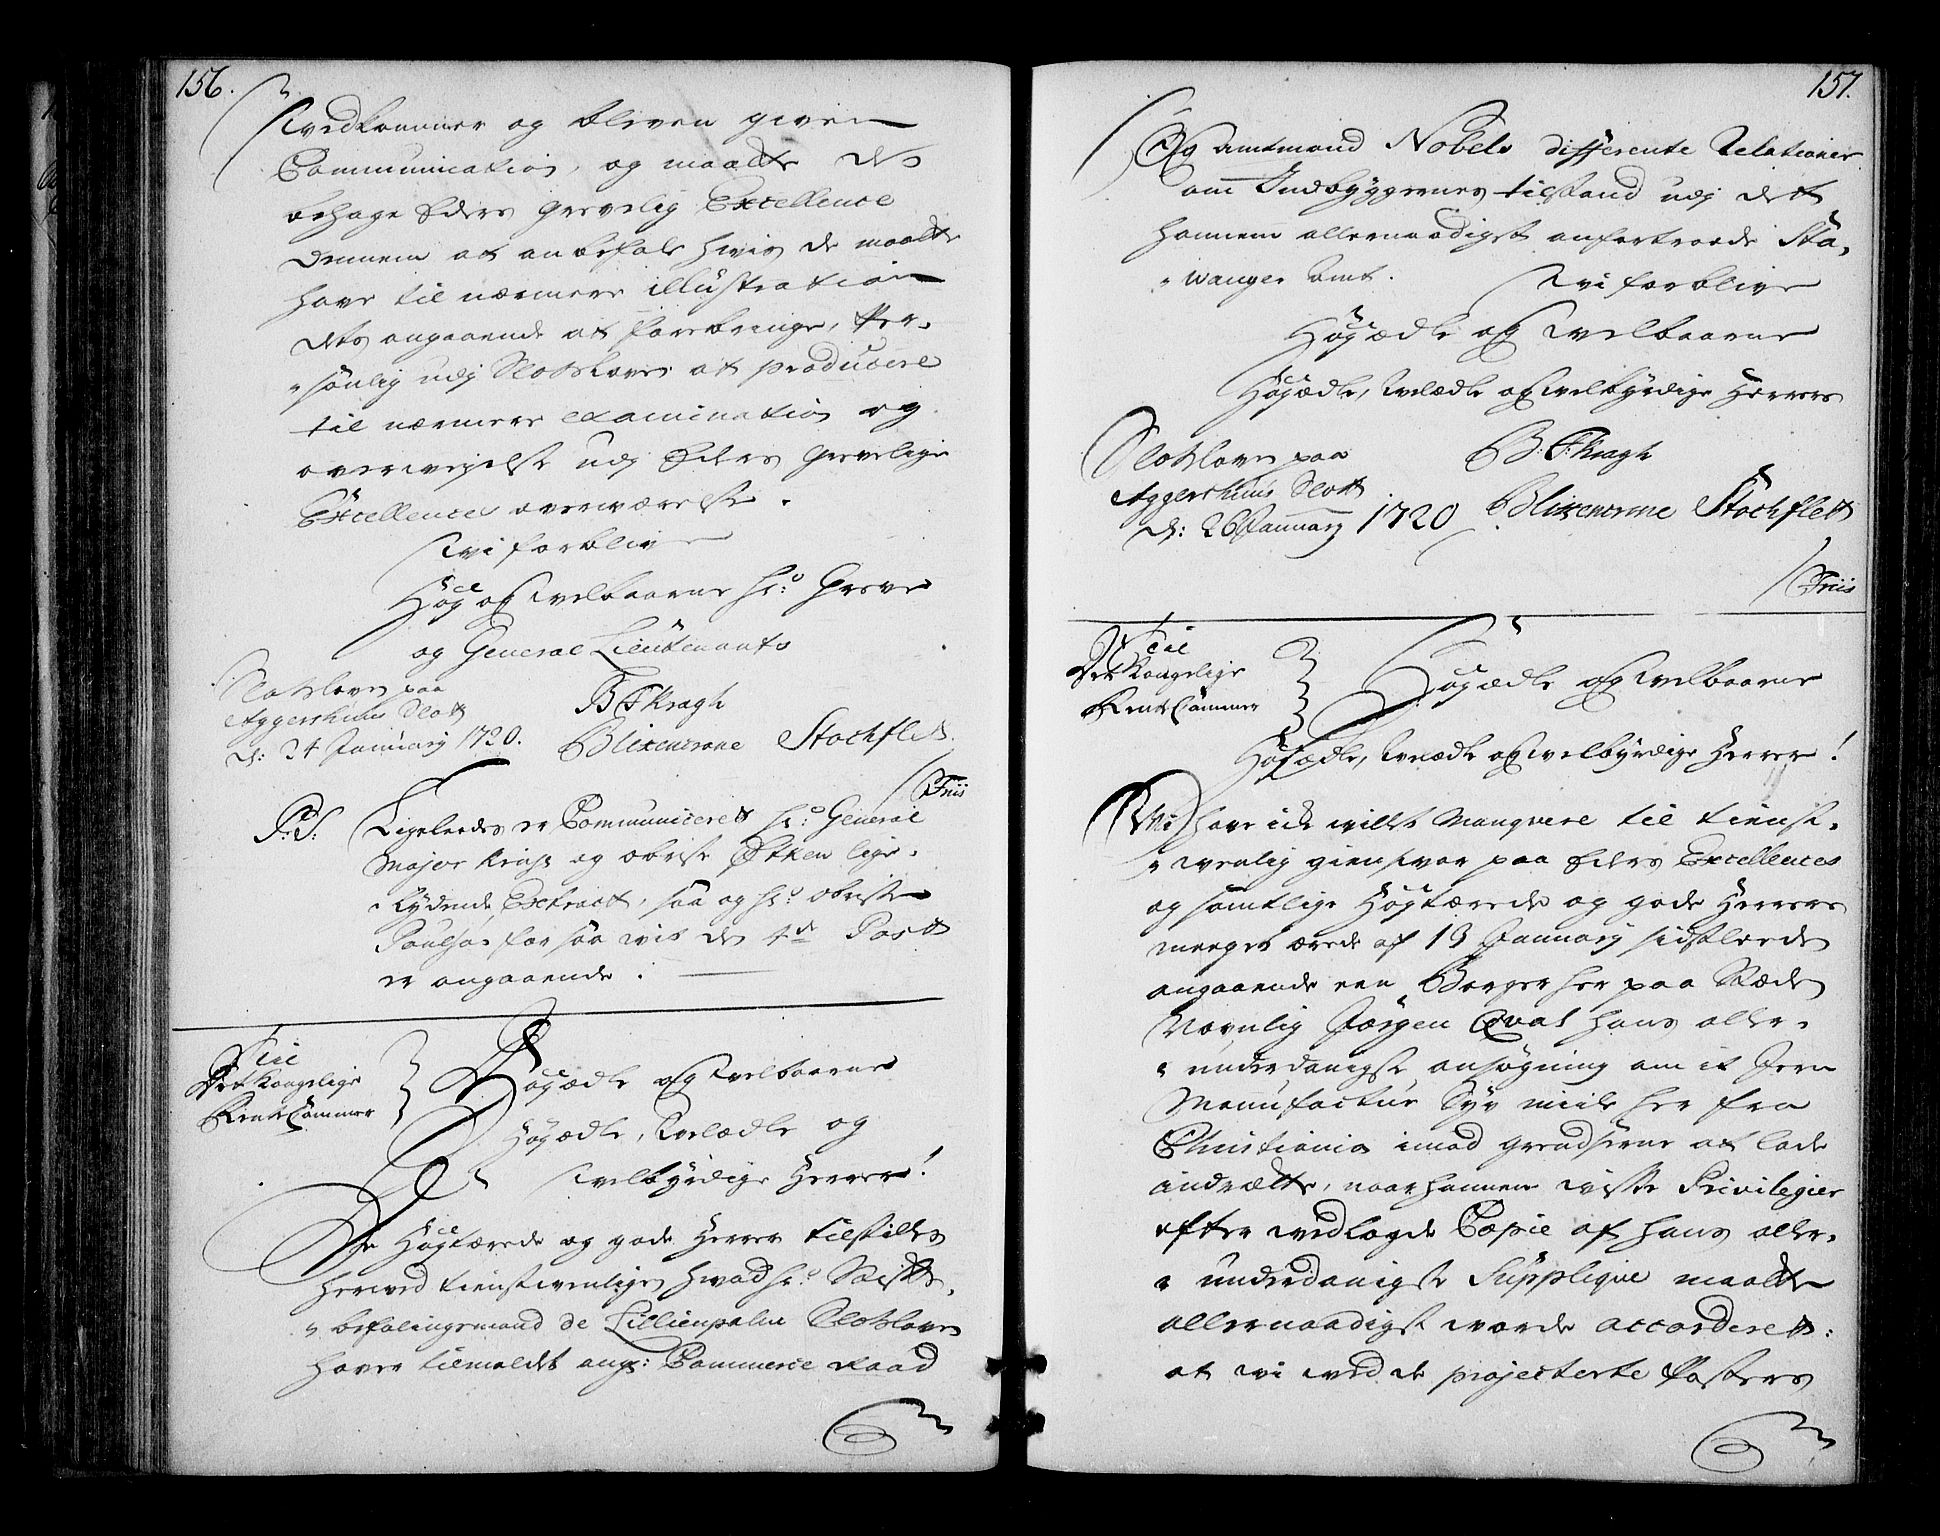 156.
vedkommer og bleven given
Communication, og maatte det
behage Eders Grevelig Excellence
dennem at anbefale hvis de maatte
have til nærmere illustration
dets angaaende at forebringe, Per-
sönlig udj Slotsloven at producere
til nærmere examination og
overvejelse udj Eders Grevelige
Excellences overværelse.
Vi forblive
Høg og Velbaarne Hr: Greve
og General Lieutenants
Slotsloven paa
Aggershuus Slott
d: 24 January 1720.
B F Kragh
Blixencrone Stochflet.
/Friis
P.S. Ligeleedes er Communiceret Hr: General
Major Kruse og obriste Ötken lige-
lydende Extract, saa og Hr: obriste
Poulson for saa vit den 4de Post
er angaaende.
Til
Det Kongelige
Rente Cammer
Høgædle og Velbaarne
Høgædle, Velædle og
Velbyrdige Herrer!
De Høgtærede og gode Herrer tilstilles
herved tienstvenligen hvad Hr: Stifts-
befalingsmand de Lillienpalm Slotsloven
haver tilmeldt ang: Commerce Raad
157.
Og Amtmand Nobels differente Relationer
om Indbyggernes tilstand udj dett
hannem allernaadigst anfortroede Sta-
vanger Amt. Vi forblive
Høgædle og Velbaarne
Høgædle, Velædle og Velbyrdige Herrers
Slotsloven paa
Aggershuus Slott
d: 26 January 1720
B: F: Kragh
Blixencrone Stochflett
/Friis
Til
Det Kongelige
Rente Cammer
Høgædle og Velbaarne
Høgædle, Velædle og Velbyrdige Herrer!
Vi have icke villet manqvere til tienst-
venlig giensvar paa Eders Excellences
og samtlige Høgtærede og gode Herrers
meeget ærede af 13 January sidstleeden
angaaende een Borger her paa Stæden
Navnlig Jørgen Qvas hans aller-
underdanigste ansøgning om it Jern
Manufactur Syv miile her fra
Christiania imod grendserne at lade
indrætte, naar hannem visse Privilegier
efter vedlagde Copie af hans aller-
underdanigste Supplique maatte
allernaadigst vorde accorderet:
at vi ved de projecterte Posters